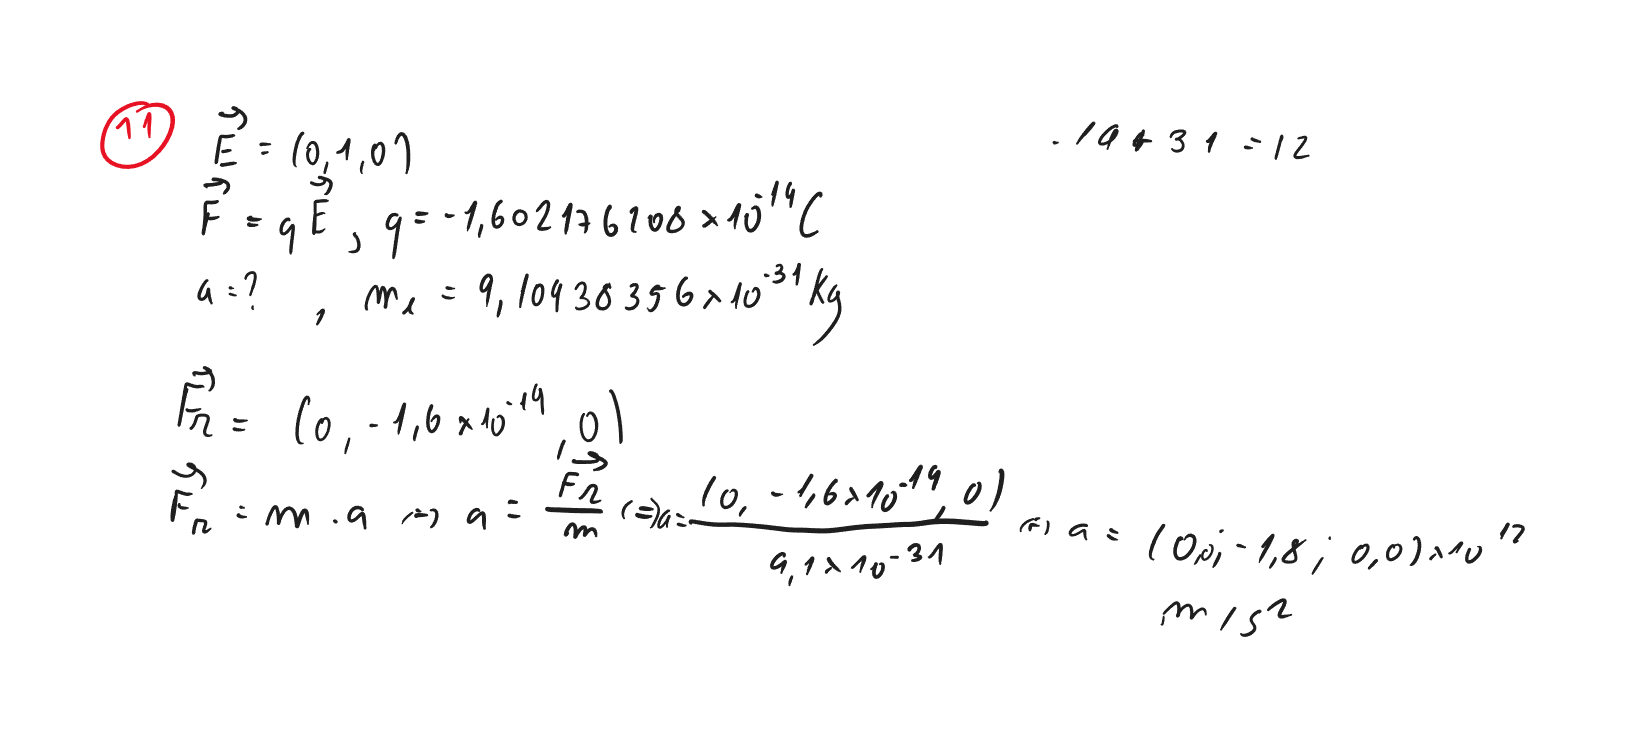 11 E⃗ = (0,1,0) . -19 + 31 = 12
F⃗ = qE⃗, q = -1,602176208 × 10⁻¹⁹ C
a = ? , mₑ = 9,10938356 × 10⁻³¹ Kg
F⃗r = (0, -1,6 × 10⁻¹⁹, 0)
F⃗r = m . a (=) a = F⃗r / m (=) a = (0, -1,6 × 10⁻¹⁹, 0) / 9,1 × 10⁻³¹ (=) a = (0,0; -1,8; 0,0) × 10¹²
m/s²